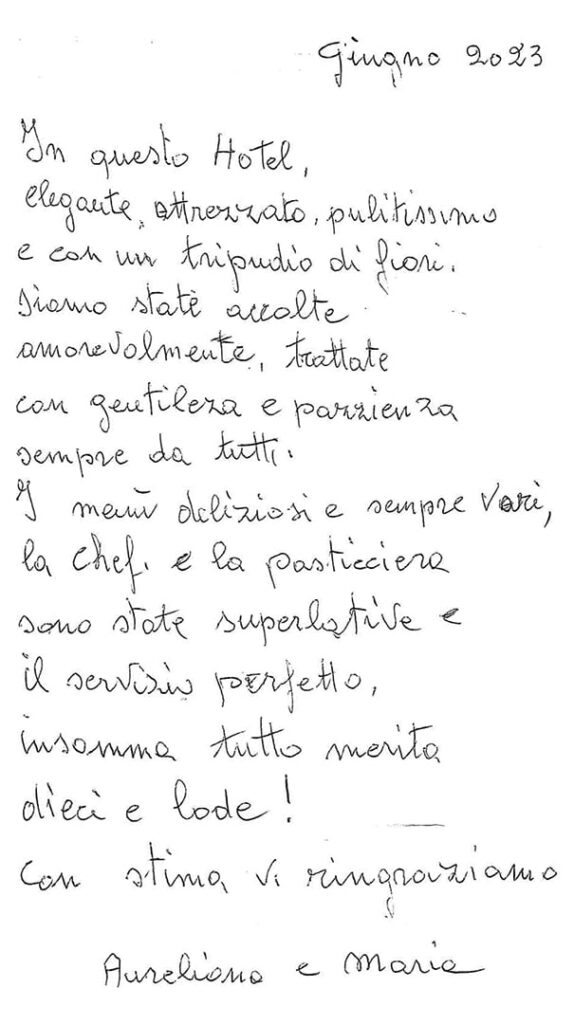 Giugno 2023
In questo Hotel,
elegante, attrezzato, pulitissimo
e con un tripudio di fiori.
Siamo state accolte
amorevolmente, trattate
con gentileza e pazzienza
sempre da tutti.
I menù deliziosi e sempre vari,
la chef. e la pasticciera
sono state superlative e
il servizio perfetto,
insomma tutto merita
dieci e lode!
Con stima vi ringraziamo
Aureliana e Maria